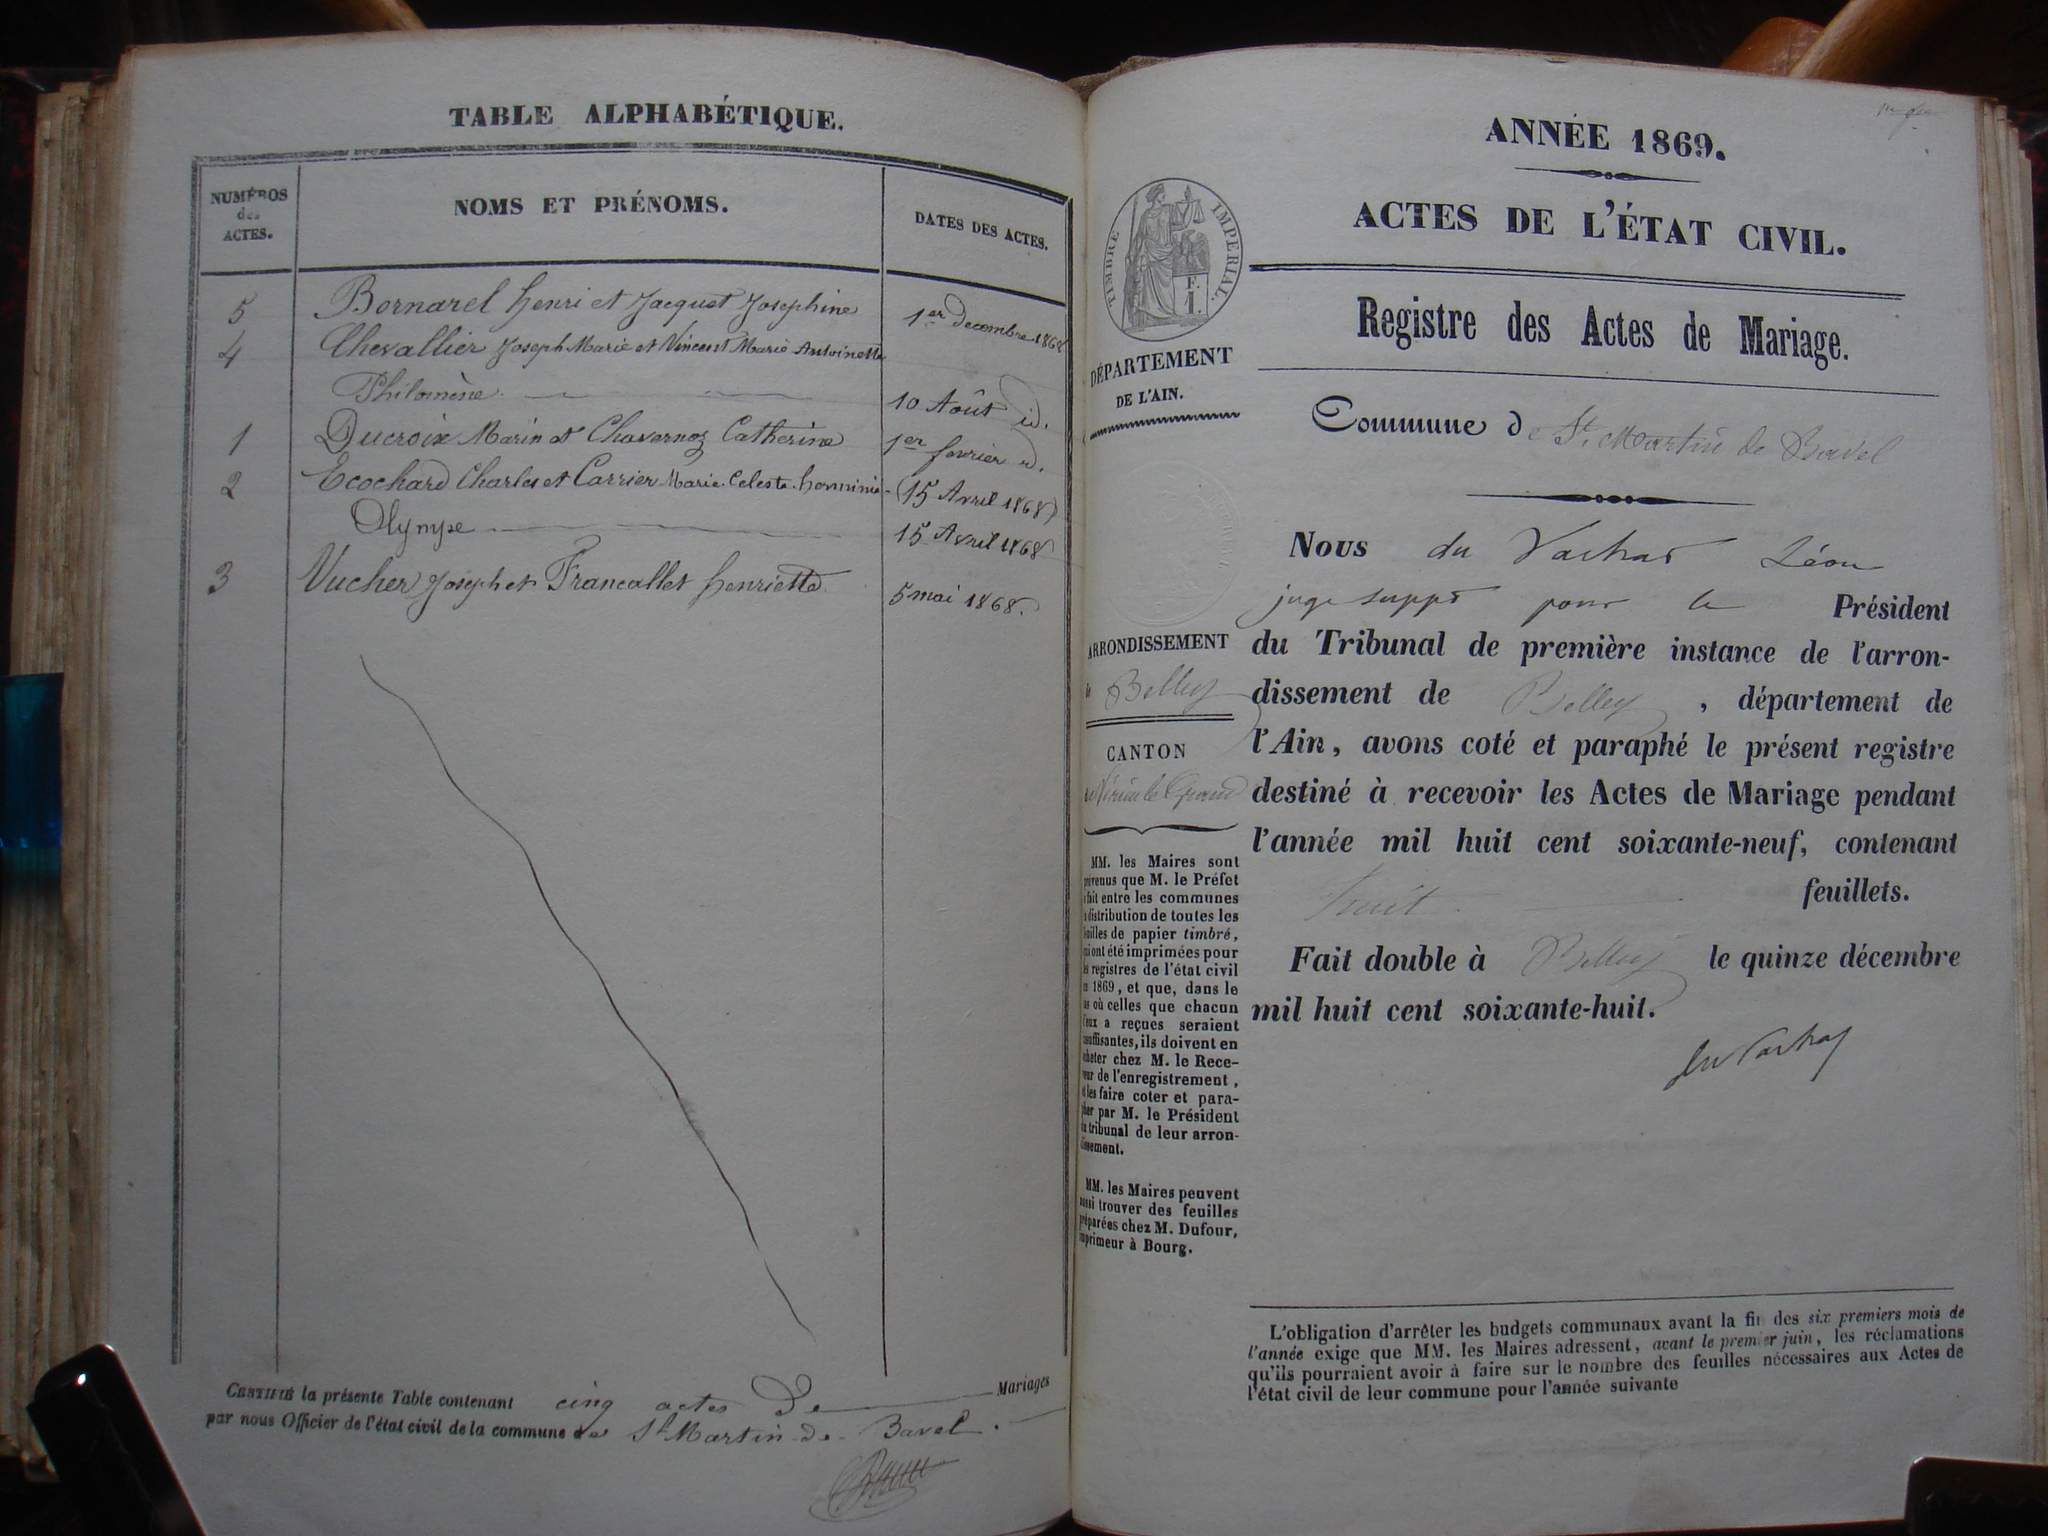 TABLE ALPHABÉTIQUE.
NUMÉROS
des
ACTES.
NOMS ET PRÉNOMS.
DATES DES ACTES.
5 Bornarel henri et Jacquet Josephine 1er decembre 1868
4 Chevallier Joseph Marie et Vincent Marie Antoinette
Philomène 10 Août id.
1 Ducroix Marin et Chavornoz Catherine 1er fevrier id.
2 Ecochard Charles et Carrier Marie Celeste (15 Avril 1868)
Olympe 15 Avril 1868
3 Vucher Joseph et Francallet henriette 5 mai 1868.
CERTIFIÉ la présente Table contenant cinq actes de Mariages
par nous Officier de l'état civil de la commune de St Martin de Bavel.
ANNÉE 1869.
ACTES DE L'ÉTAT CIVIL.
TIMBRE IMPERIAL.
F.
1.
Registre des Actes de Mariage.
DÉPARTEMENT
DE L'AIN.
Commune de St. Martin de Bavel
Nous du Vachat Léon
juge suppt pour le Président
du Tribunal de première instance de l'arron-
dissement de Belley, département de
l'Ain, avons coté et paraphé le présent registre
destiné à recevoir les Actes de Mariage pendant
l'année mil huit cent soixante-neuf, contenant
huit feuillets.
Fait double à Belley le quinze décembre
mil huit cent soixante-huit.
du Vachat
ARRONDISSEMENT
de Belley
CANTON
de Virieu le Grand
MM. les Maires sont
prévenus que M. le Préfet
a fait entre les communes
la distribution de toutes les
feuilles de papier timbré,
qui ont été imprimées pour
les registres de l'état civil
en 1869, et que, dans le
cas où celles que chacun
d'eux a reçues seraient
insuffisantes, ils doivent en
acheter chez M. le Rece-
veur de l'enregistrement,
et les faire coter et para-
pher par M. le Président
du tribunal de leur arron-
dissement.
MM. les Maires peuvent
aussi trouver des feuilles
préparées chez M. Dufour,
imprimeur à Bourg.
L'obligation d'arrêter les budgets communaux avant la fin des six premiers mois de
l'année exige que MM. les Maires adressent, avant le premier juin, les réclamations
qu'ils pourraient avoir à faire sur le nombre des feuilles nécessaires aux Actes de
l'état civil de leur commune pour l'année suivante